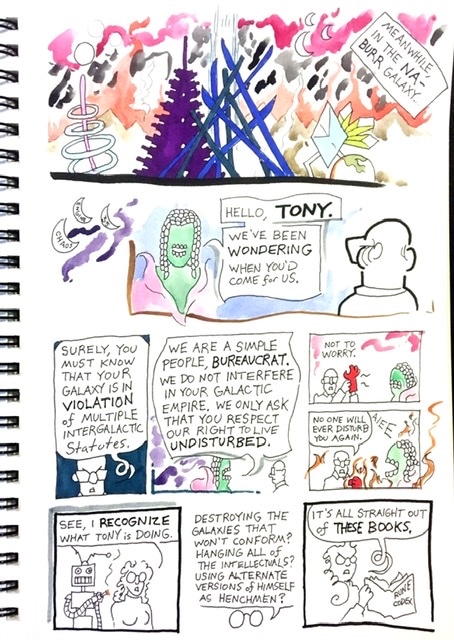 MEANWHILE,
IN THE NA-
BURR GALAXY...
HELLO, TONY.
WE'VE BEEN
WONDERING
WHEN YOU'D
COME for US.
CHAOS
SURELY, YOU
MUST KNOW
THAT YOUR
GALAXY IS IN
VIOLATION
of MULTIPLE
INTERGALACTIC
STATUTES.
WE ARE A SIMPLE
PEOPLE, BUREAUCRAT.
WE DO NOT INTERFERE
IN YOUR GALACTIC
EMPIRE. WE ONLY ASK
THAT YOU RESPECT
OUR RIGHT TO LIVE
UNDISTURBED.
NOT TO
WORRY.
NO ONE WILL
EVER DISTURB
YOU AGAIN.
AIEE
SEE, I RECOGNIZE
WHAT TONY is DOING.
DESTROYING THE
GALAXIES THAT
WON'T CONFORM?
HANGING ALL of
THE INTELLECTUALS?
USING ALTERNATE
VERSIONS of HIMSELF
AS HENCHMEN?
IT'S ALL STRAIGHT OUT
of THESE BOOKS.
RUNE
CODEX